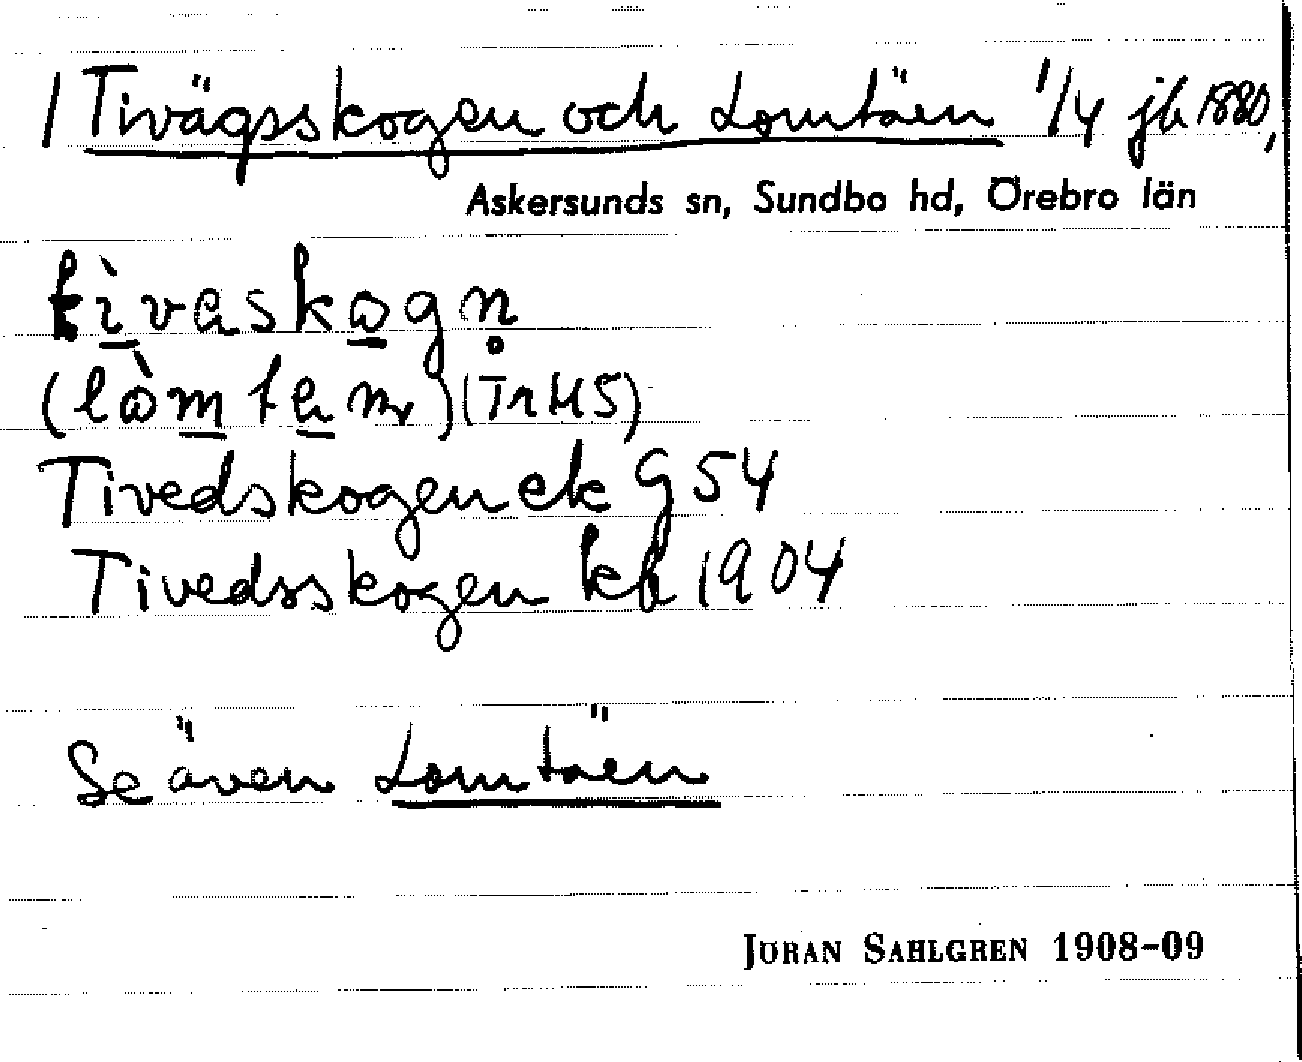 1 Tivägsskogen och Lomtäen 1/4 jb 1880,
Askersunds sn, Sundbo hd, Örebro län
tìvaskogn̥
(lòmten)(TrHS)
Tivedskogen ek G 54
Tivedsskogen kb 1904
Se även Lomtäen
JÖRAN SAHLGREN 1908-09